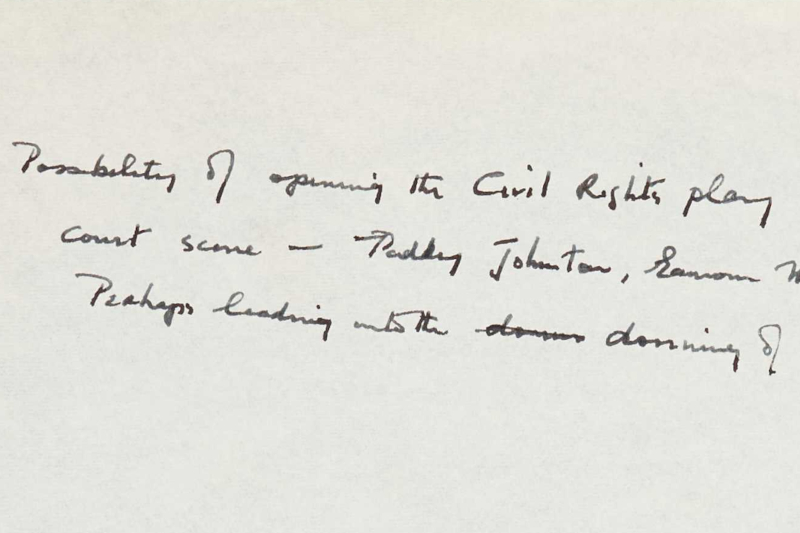 Possibility of opening the Civil Rights play
court scene — Paddy Johnston, Eamonn
Perhaps leading into the donning of